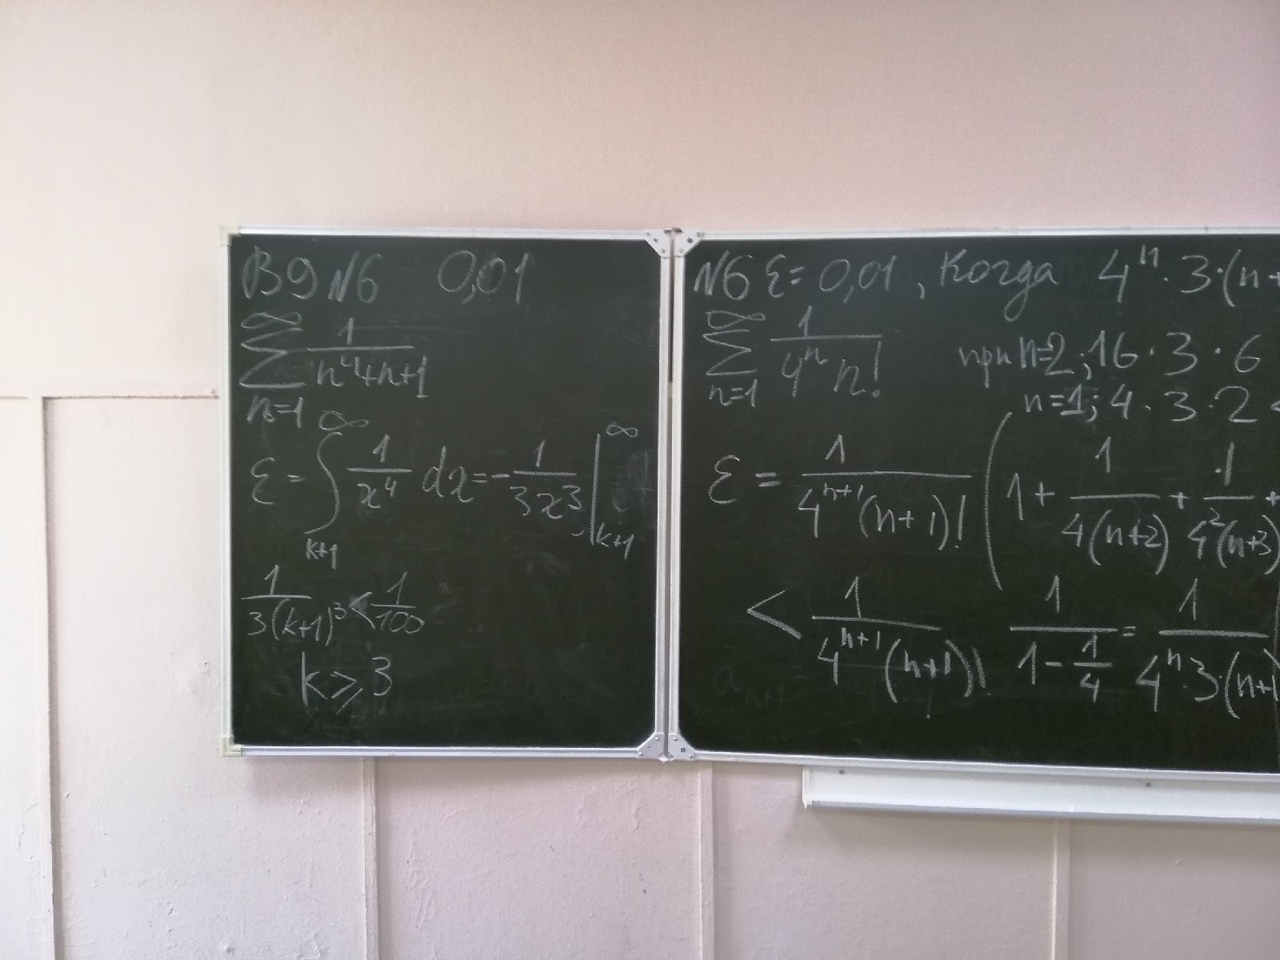 В9 №6 0,01
∞
∑ 1/(n⁴+n+1)
n=1
ε = ∫_{k+1}^{∞} 1/x⁴ dx = -1/(3x³) |_{k+1}^{∞}
1/(3(k+1)³) < 1/100
k ⩾ 3
№6 ε = 0,01, Когда 4ⁿ·3·(n+
∞
∑ 1/(4ⁿ n!)
n=1
при n=2; 16·3·6
n=1; 4·3·2 <
ε = 1/(4ⁿ⁺¹(n+1)!) (1 + 1/(4(n+2)) + 1/(4²(n+3) +
< 1/(4ⁿ⁺¹(n+1)!) 1/(1-1/4) = 1/(4ⁿ·3·(n+1)